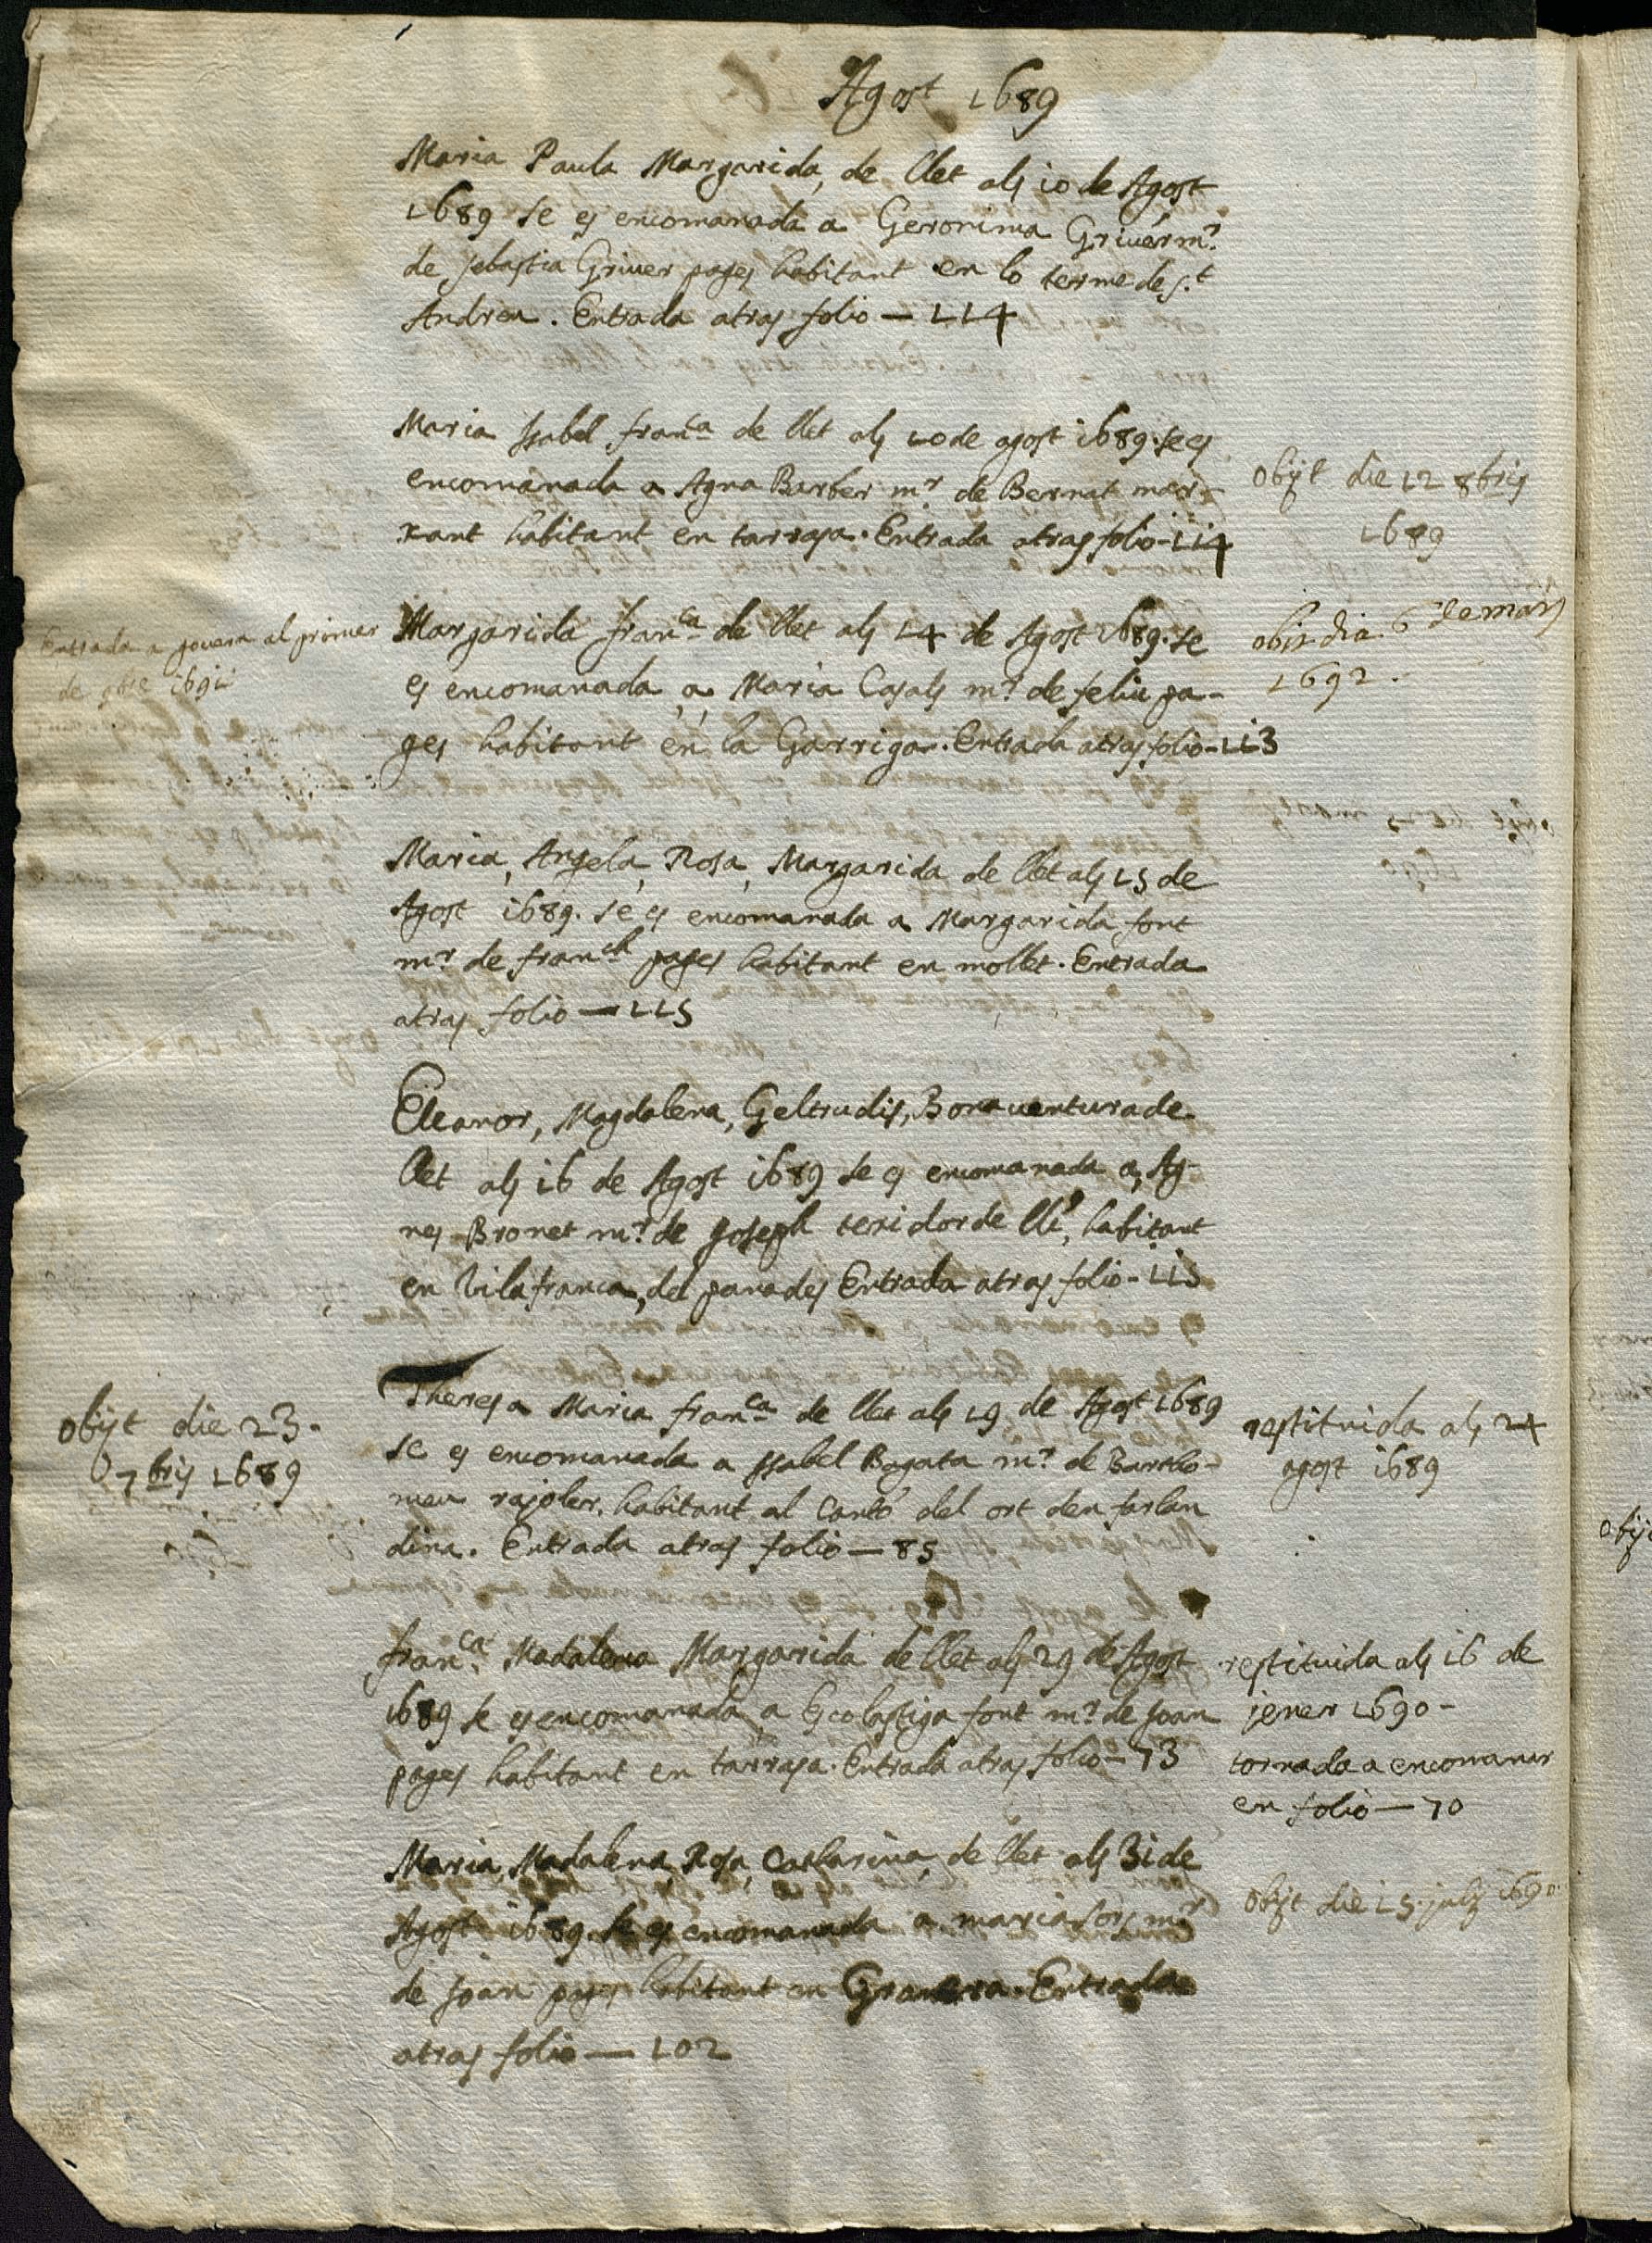 Agost 1689
Maria Paula Margarida, de llet als 10 de Agost
1689 se es encomanada a Geronima Griver mr.
de sebastia Griver pages habitant en lo terme de s.t
Andreu. Entrada atras folio — 114
Maria Isabel fran.ca de llet als 10 de agost 1689. se es
encomanada a Agna Barber mr de Bernat mar-
xant habitant en tarrasa. Entrada atras folio - 114
obijt die 12 8bris
1689
Entrada a govern al primer
de 9bre 1691
Margarida fran.ca de llet als 14 de Agost 1689. se
es encomanada a Maria Casals mr. de feliu pa-
ges habitant en la Garriga. Entrada atras folio - 113
obit dia 6 de mars
1692.
Maria, Angela, Rosa, Margarida de llet als 15 de
Agost 1689. se es encomanada a Margarida font
mr de fran.ch pages habitant en mollet. Entrada
atras folio — 115
Eleanor, Magdalena, Geltrudis, Bonaventura de
llet als 16 de Agost 1689 se es encomanada a, Ag-
nes Bronet mr. de Joseph texidor de lli, habitant
en Vilafranca, del panades Entrada atras folio - 115
obijt die 23.
7bris 1689
Theresa Maria fran.ca de llet als 19 de Agost 1689
se es encomanada a Isabel Bogata mr. de Bartho-
meu rajoler. habitant al Cantó del ort den farlan
dina. Entrada atras folio — 85
restituida als 24
agost 1689
fran.ca Madalena Margarida de llet als 29 de Agost
1689 se es encomanada a Escolastiga font mr. de Joan
pages habitant en tarrasa. Entrada atras folio — 73
restituida als 16 de
jener 1690 -
tornada a encomanar
en folio — 70
Maria, Madalena, Rosa, Catharina, de llet als 31 de
Agost 1689. se es encomanada a maria sors mr
de joan pages habitant en Granera. Entrada
atras folio — 102
obijt die 15 july 1690.